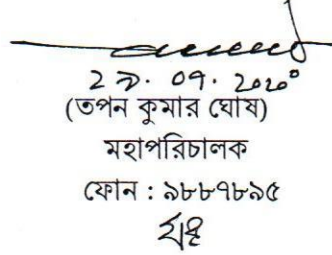 ২৯. ০৭. ২০২০
(তপন কুমার ঘোষ)
মহাপরিচালক
ফোন : ৯৮৮৭৮৯৫